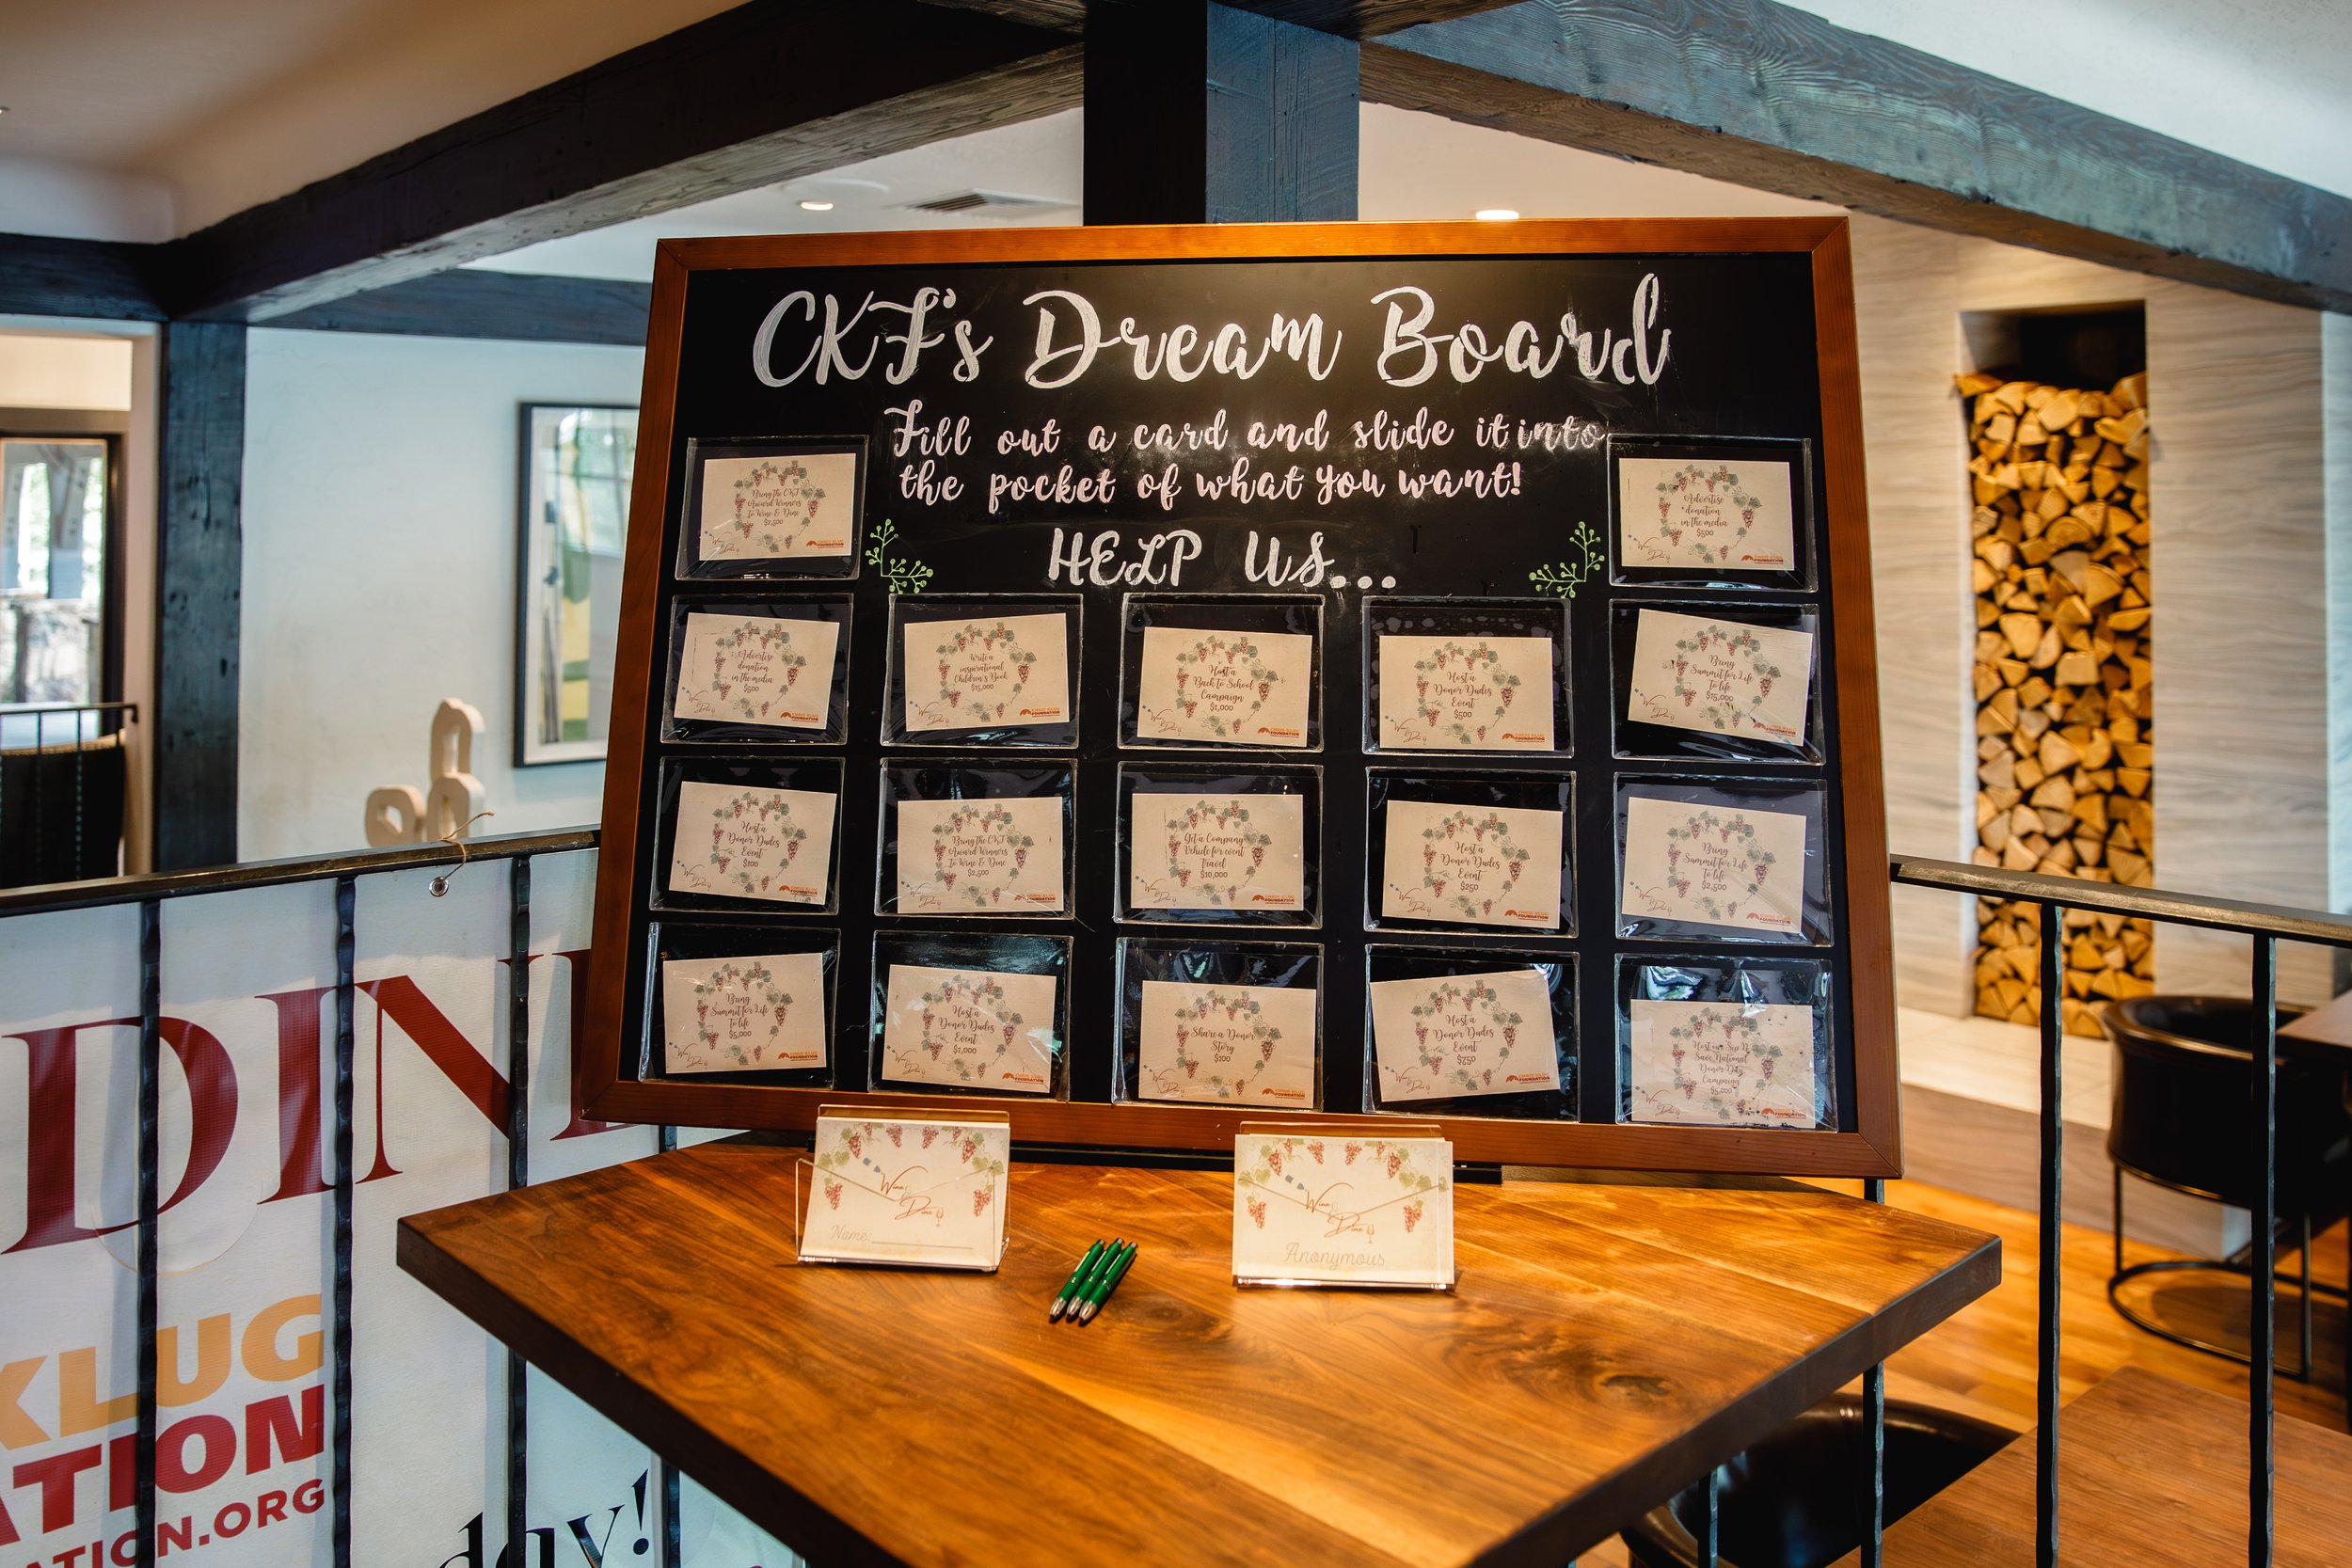 CKF's Dream Board
Fill out a card and slide it into
the pocket of what you want!
HELP US...
Bring the CKF
Award Winners
To Wine & Dine
$2,500
Advertise
donation
in the media
$500
Advertise
donation
in the media
$500
Write a
inspirational
Children's Book
$15,000
Host a
Back to School
Campaign
$1,000
Host a
Donor Dudes
Event
$500
Bring
Summit for Life
To life
$15,000
Host a
Donor Dudes
Event
$100
Bring the CKF
Award Winners
To Wine & Dine
$2,500
Get a Company
Vehicle for event
Travel
$10,000
Host a
Donor Dudes
Event
$250
Bring
Summit for Life
To life
$2,500
Bring
Summit for Life
To life
$5,000
Host a
Donor Dudes
Event
$1,000
Share a Donor
Story
$100
Host a
Donor Dudes
Event
$750
Host our Sip N
Save National
Donor Day
Campaign
$5,000
Wine
Dine
Name:
Wine
Dine
Anonymous
DINE
KLUG
ATION
ATION.ORG
day!